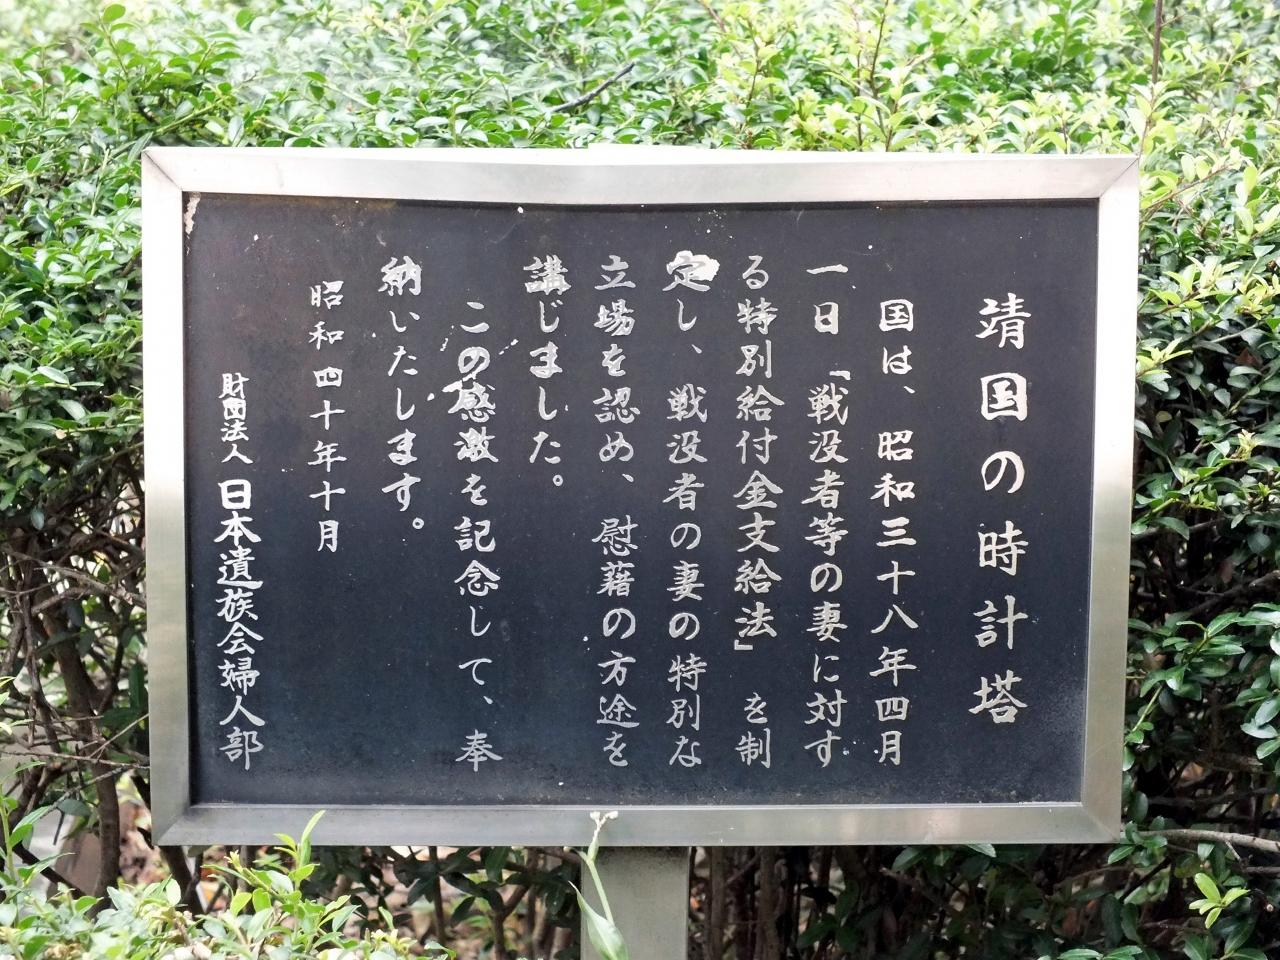 靖国の時計塔
国は、昭和三十八年四月
一日「戦没者等の妻に対す
る特別給付金支給法」を制
定し、戦没者の妻の特別な
立場を認め、慰藉の方途を
講じました。
この感激を記念じて、奉
納いたします。
昭和四十年十月
財団法人 日本遺族会婦人部